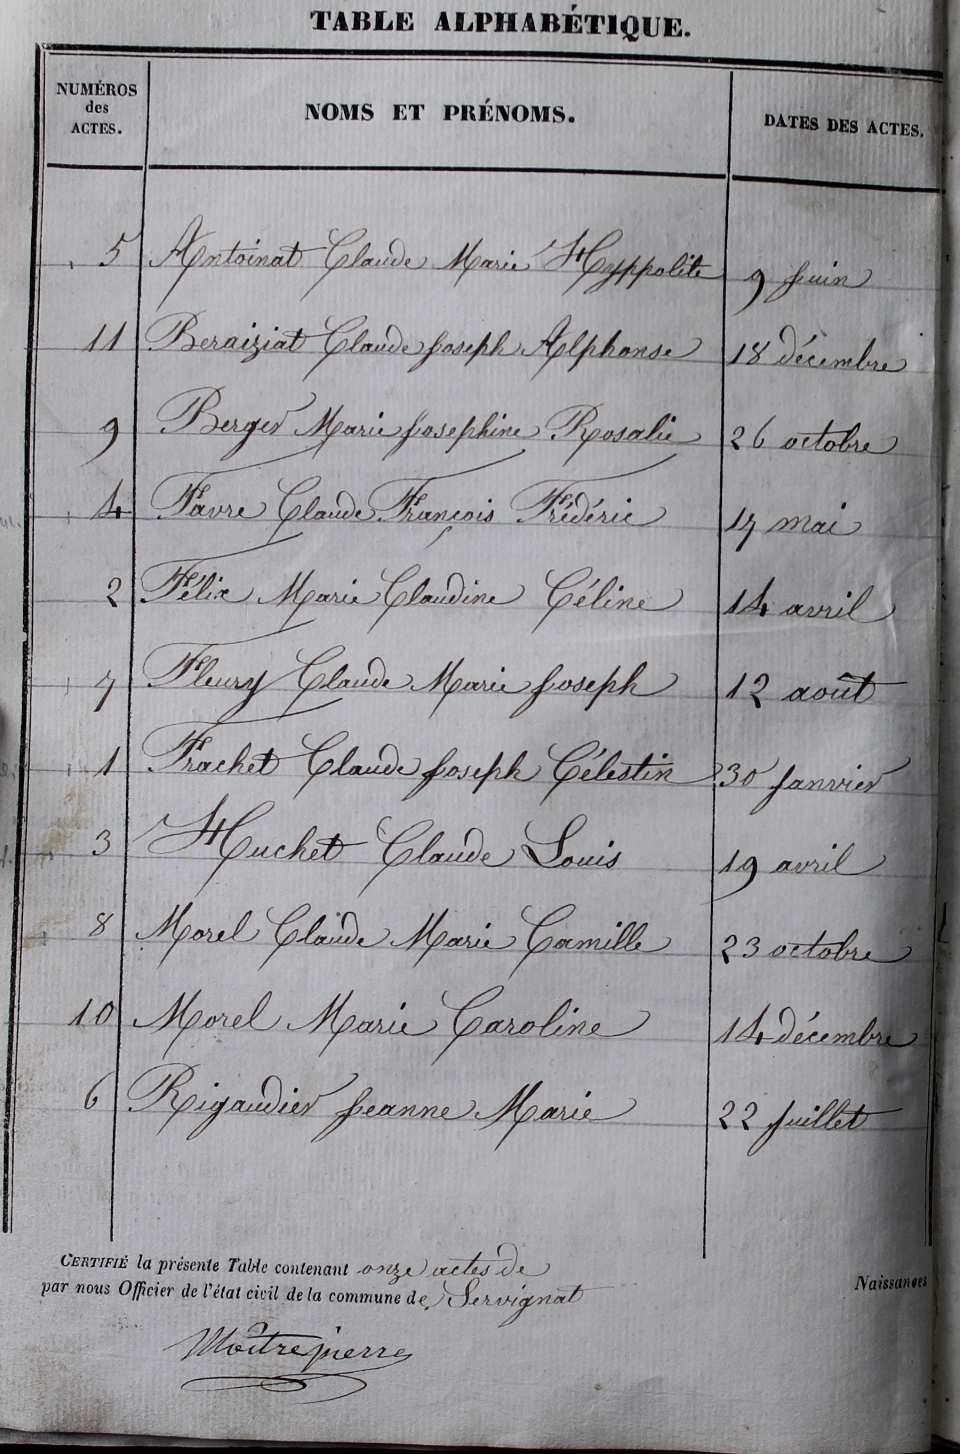 TABLE ALPHABÉTIQUE.
NUMÉROS
des
ACTES.
NOMS ET PRÉNOMS.
DATES DES ACTES.
5 Antoinat Claude Marie Hyppolite 9 juin
11 Beraiziat Claude Joseph Alphonse 18 décembre
9 Berger Marie Josephine Rosalie 26 octobre
4 Favre Claude François Frédéric 17 mai
2 Félix Marie Claudine Céline 14 avril
7 Fleury Claude Marie Joseph 12 août
1 Frachet Claude Joseph Célestin 30 janvier
3 Huchet Claude Louis 19 avril
8 Morel Claude Marie Camille 23 octobre
10 Morel Marie Caroline 14 décembre
6 Rigaudier Jeanne Marie 22 juillet
CERTIFIÉ la présente Table contenant onze actes de Naissances
par nous Officier de l'état civil de la commune de Servignat
Moîtrepierre